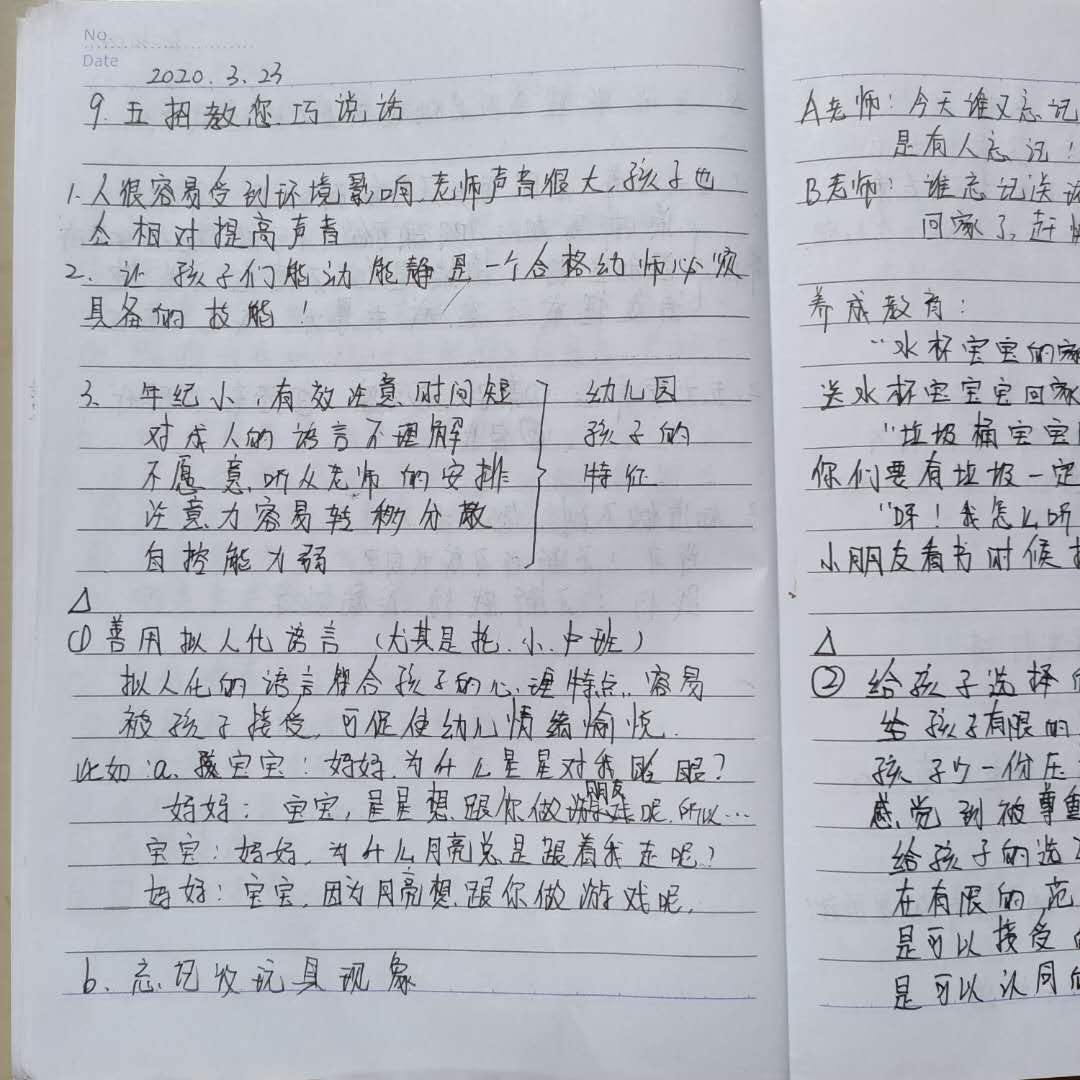 No
Date
2020.3.23
9.五招教您巧说话
1.人很容易受到环境影响,老师声音很大,孩子也
会相对提高声音
2.让孩子们能动能静是一个合格幼师必须
具备的技能!
3、年纪小,有效注意时间短
对成人的语言不理解
不愿意听从老师的安排
注意力容易转移分散
自控能力弱
幼儿园
孩子的
特征
△
①善用拟人化语言(尤其是托.小.中班)
拟人化的语言符合孩子的心理特点,容易
被孩子接受,可促使幼儿情绪愉悦.
比如:a.宝宝:妈妈,为什么星星对我眨眼?
朋友
妈妈:宝宝,星星想跟你做呢,所以…
宝宝:妈妈,为什么月亮总是跟着我走呢?
妈妈:宝宝,因为月亮想跟你做游戏呢,
b.忘记收玩具现象
A老师:今天谁又忘记
是有人忘记!
B老师:谁忘记送
回家了,赶
养成教育:
"水杯宝宝的家
送水杯宝宝宝回家
"垃圾桶宝宝
你们要有垃圾一定
"呀!我怎么听
小朋友看书时候
△
②给孩子选择
给孩子有限的
孩子少一份压
感觉到被尊重
给孩子的选
在有限的范
是可以接受
是可以认同